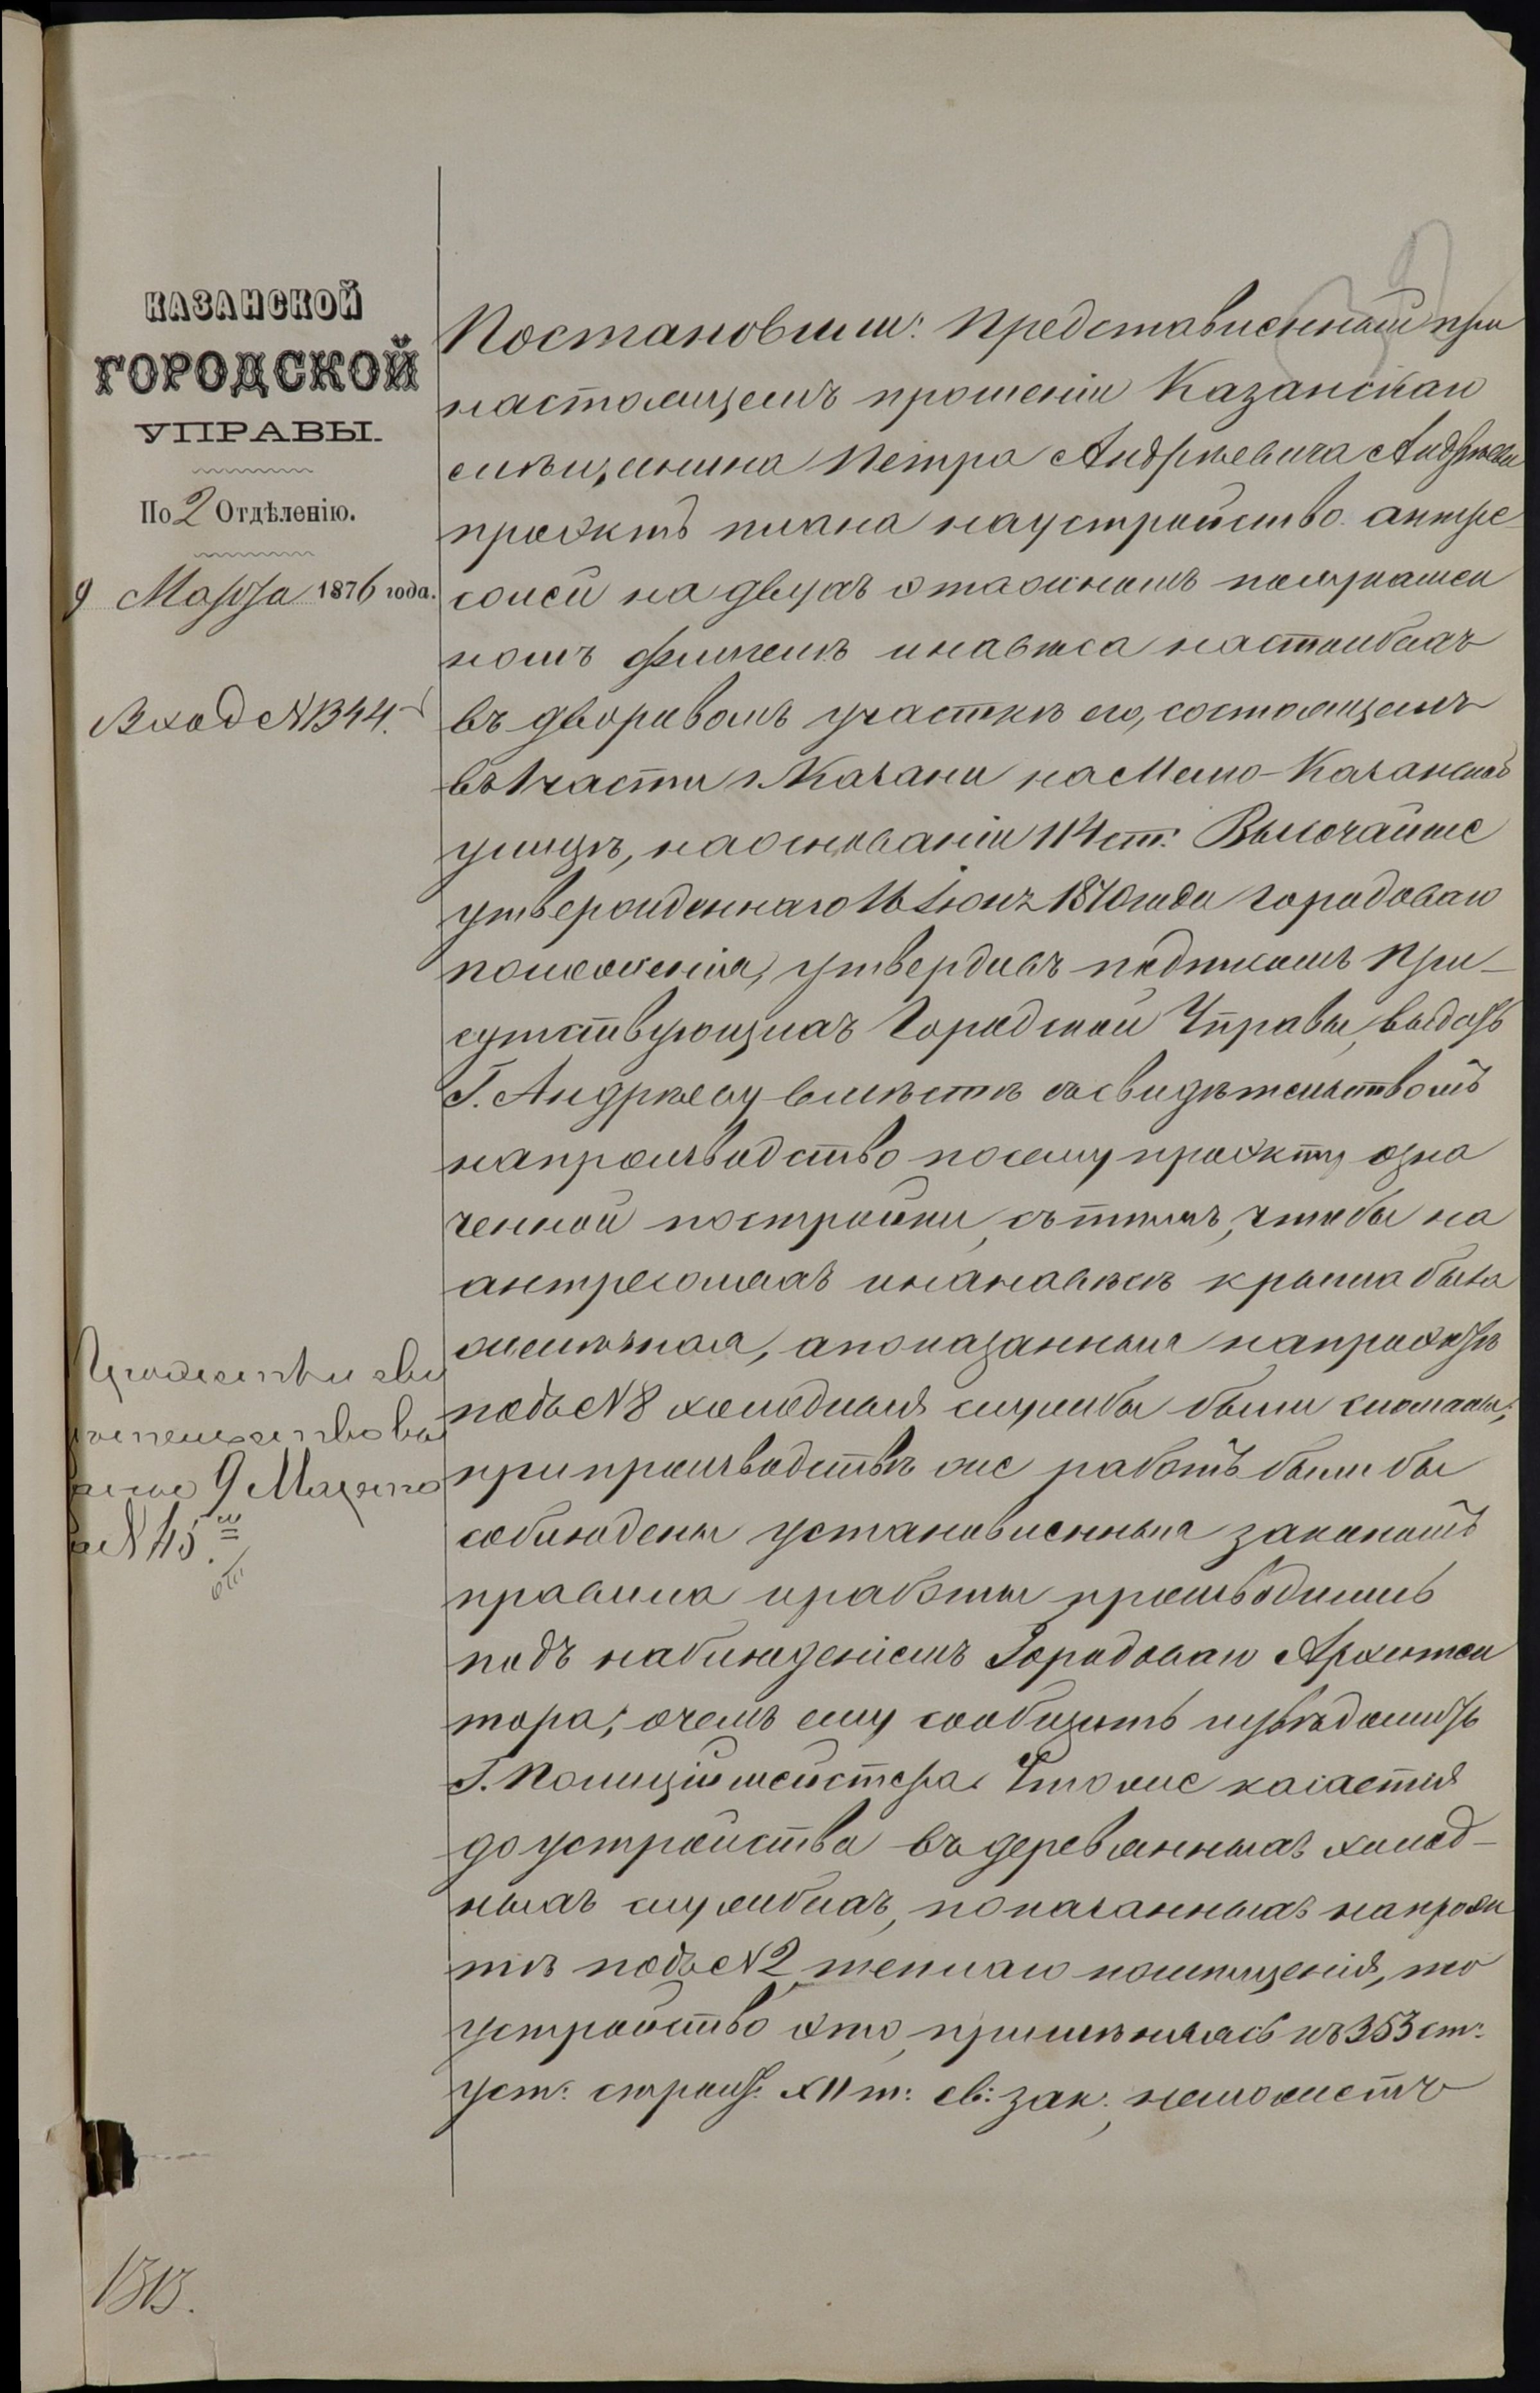 КАЗАНСКОЙ
ГОРОДСКОЙ
УПРАВЫ.
По 2 Отдѣленію.
9 Марта 1876 года.
Вход № 1344.
Постановили: Представленный при
настоящемъ прошеніи Казанскаго
мѣщанина Петра Андреевича Андреева
проэктъ плана на устройство антре-
солей на двухъ этажномъ полукамен
номъ флигелѣ и навѣса на столбахъ
въ дворовомъ участкѣ его, состоящемъ
въ 1 части г. Казани на Мало-Казанской
улицѣ, на основаніи 114 ст. Высочайше
утвержденнаго 16 Іюня 1870 года Городоваго
положенія, утвердивъ подписомъ При-
сутствующихъ Городской Управы, выдать
Г. Андрееву вмѣстѣ съ свидѣтельствомъ
на производство по сему проэкту озна
ченной постройки, съ тѣмъ, чтобы на
антресоляхъ и на навѣсѣ крыша была
желѣзная, а показанныя на проэктѣ
подъ № 8 холодныя службы были сломаны;
при производствѣ же работъ были бы
соблюдены установленныя закономъ
правила и работы производились
подъ наблюденіемъ Городоваго Архитек
тора; о чемъ ему сообщить и увѣдомить
Г. Полиціймейстера. Что же касается
до устройства въ деревянныхъ холод-
ныхъ службахъ, показанныхъ на проэк
тѣ подъ № 2 теплаго помѣщенія, то
устройство это, примѣняясь къ 353 ст.
уст: строит: XII т: св: зак:, не можетъ
9 Марта
№ 45
1313.